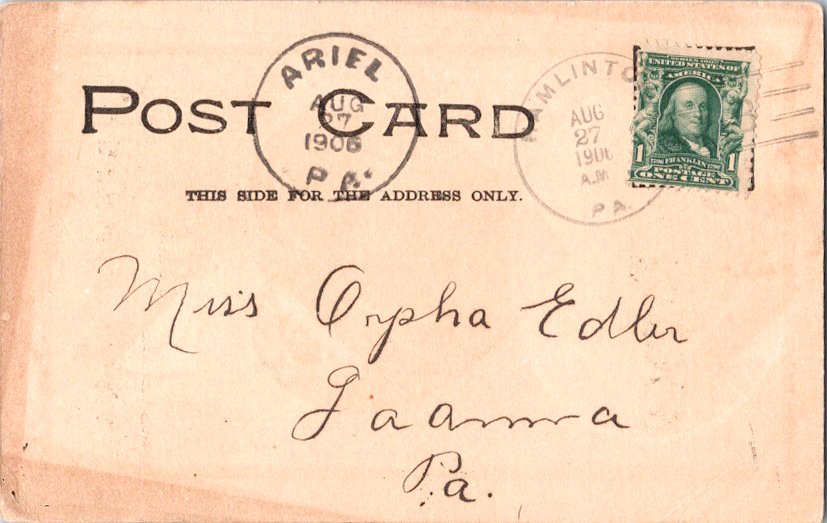 ARIEL
AUG
27
1906
PA.
HAMLINTO
AUG
27
1906
A.M
PA.
SERIES 1902
UNITED STATES OF
AMERICA
1706 FRANKLIN 1790
1 1
POSTAGE
ONE CENT
POST CARD
THIS SIDE FOR THE ADDRESS ONLY.
Miss Orpha Edler
Gaanna
Pa.